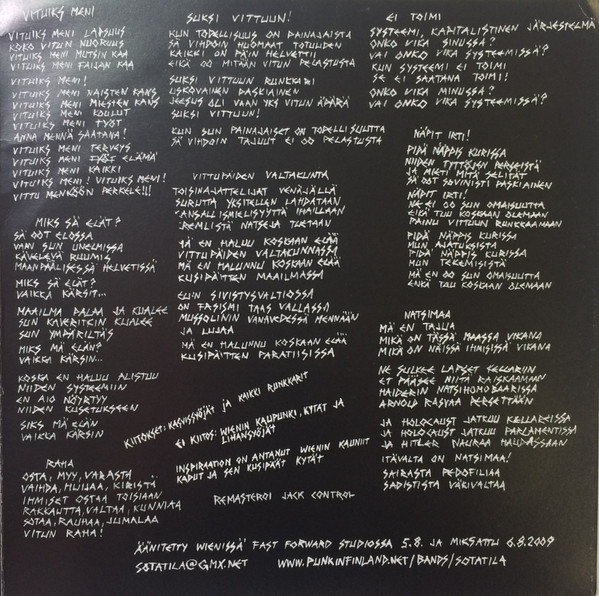 VITUIKS MENI
VITUIKS MENI LAPSUUS
KOKO VITUN NUORUUS
VITUIKS MENI MUTSIN KAA
VITUIKS MENI FAIJAN KAA
VITUIKS MENI!
VITUIKS MENI NAISTEN KANS
VITUIKS MENI MIESTEN KANS
VITUIKS MENI KOULUT
VITUIKS MENI TYÖT
ANNA MENNÄ SAATANA!
VITUIKS MENI TERVEYS
VITUIKS MENI TYÖT ELÄMÄ
VITUIKS MENI KAIKKI
VITUIKS MENI! VITUIKS MENI!
VITTU MENKÖÖN PERKELE!!!
MIKS SÄ ELÄT?
SÄ OOT ELOSSA
VAAN SUN UNELMISSA
KÄVELEVÄ RUUMIS
MAANPÄÄLISESSÄ HELVETISSÄ
MIKS SÄ ELÄT?
VAIKKA KÄRSIT...
MAAILMA PALAA JA KUALEE
SUN KAVERITKIN KUALEE
SUN YMPÄRILTÄS
MIKS MÄ ELÄN?
VAIKKA KÄRSIN...
KOSKA EN HALUU ALISTUU
NIIDEN SYSTEEMIIN
EN AIO NÖYRTYY
NIIDEN KUSETUKSEEN
SIKS MÄ ELÄN
VAIKKA KÄRSIN
RAHA
OSTA, MYY, VARASTA
VAIHDA, HUIJAA, KIRISTÄ
IHMISET OSTAA TOISIAAN
RAKKAUTTA, VALTAA, KUNNIAA
SOTAA, RAUHAA, JUMALAA
VITUN RAHA!
SUKSI VITTUUN!
KUN TODELLISUUS ON PAINAJAISTA
SÄ VIHDOIN HUOMAAT TOTUUDEN
KAIKKI ON PÄIN HELVETTII
EIKÄ OO MITÄÄN VITUN PELASTUSTA
SUKSI VITTUUN RUNKKARI
USKOVAINEN PASKIAINEN
JEESUS OLI VAAN YKS VITUN ÄPÄRÄ
SUKSI VITTUUN!
KUN SUN PAINAJAISET ON TODELLISUUTTA
SÄ VIHDOIN TAJUUT EI OO PELASTUSTA
VITTUPÄIDEN VALTAKUNTA
TOISINAJATTELIJAT VENÄJÄLLÄ
SURUTTA YKSITELLEN LAHDATAAN
KANSALLISMIELISYYTTÄ IHAILLAAN
NATSEJA TUETAAN
MÄ EN HALUU KOSKAAN ELÄÄ
VITTUPÄIDEN VALTAKUNNASSA
MÄ EN HALUNNU KOSKAAN ELÄÄ
KUSIPÄITTEN MAAILMASSA
EU:N SIVISTYSVALTIOSSA
ON FASISMI TAAS VALLASSA
MUSSOLININ VANAVEDESSÄ MENNÄÄN
JA LUJAA
MÄ EN HALUNNU KOSKAAN ELÄÄ
KUSIPÄITTEN PARATIISISSA
KIITOKSET: KASVISSYÖJÄT JA KAIKKI RUNKKARIT
EI KIITOS: WIENIN KAUPUNKI, KYTÄT JA
LIHANSYÖJÄT
INSPIRAATION ANTANUT WIENIN KAUNIIT
KADUT JA SEN KUSIPÄÄT KYTÄT
REMASTEROI JACK CONTROL
EI TOIMI
SYSTEEMI, KAPITALISTINEN JÄRJESTELMÄ
ONKO VIKA SINUSSA?
VAI ONKO VIKA SYSTEEMISSÄ?
KUN SYSTEEMI EI TOIMI
SE EI SAATANA TOIMI!
ONKO VIKA MINUSSA?
VAI ONKO VIKA SYSTEEMISSÄ?
NÄPIT IRTI!
PIDÄ NÄPPIS KURISSA
NIIDEN TYTTÖJEN PERSEISTÄ
JA MIETI MITÄ SELITÄT
SÄ OOT SOVINISTI PASKIAINEN
NÄPIT IRTI!
NE EI OO SUN OMAISUUTTA
EIKÄ TUU KOSKAAN OLEMAAN
PAINU VITTUUN RUNKKAAMAAN
PIDÄ NÄPPIS KURISSA
MUN AJATUKSISTA
PIDÄ NÄPPIS KURISSA
MUN TEKEMISISTÄ
MÄ EN OO SUN OMAISUUTTA
ENKÄ TUU KOSKAAN OLEMAAN
NATSIMAA
MÄ EN TAJUA
MIKÄ ON TÄSSÄ MAASSA VIKANA
MIKÄ ON NÄISSÄ IHMISISSÄ VIKANA
NE SULKEE LAPSET KELLARIIN
ET PÄÄSEE NIITÄ RAISKAAMAAN
HAIDERIN NATSIHOMOBAARISSA
ARNOLD RASVAA PERSETTÄÄN
JA HOLOCAUST JATKUU KELLAREISSA
JA HOLOCAUST JATKUU PARLAMENTISSA
JA HITLER NAURAA HAUDASSAAN
ITÄVALTA ON NATSIMAA!
SAIRASTA PEDOFILIAA
SADISTISTA VÄKIVALTAA
ÄÄNITETTY WIENISSÄ FAST FORWARD STUDIOSSA 5.8. JA MIKSATTU 6.8.2009
SOTATILA@GMX.NET WWW.PUNKINFINLAND.NET/BANDS/SOTATILA